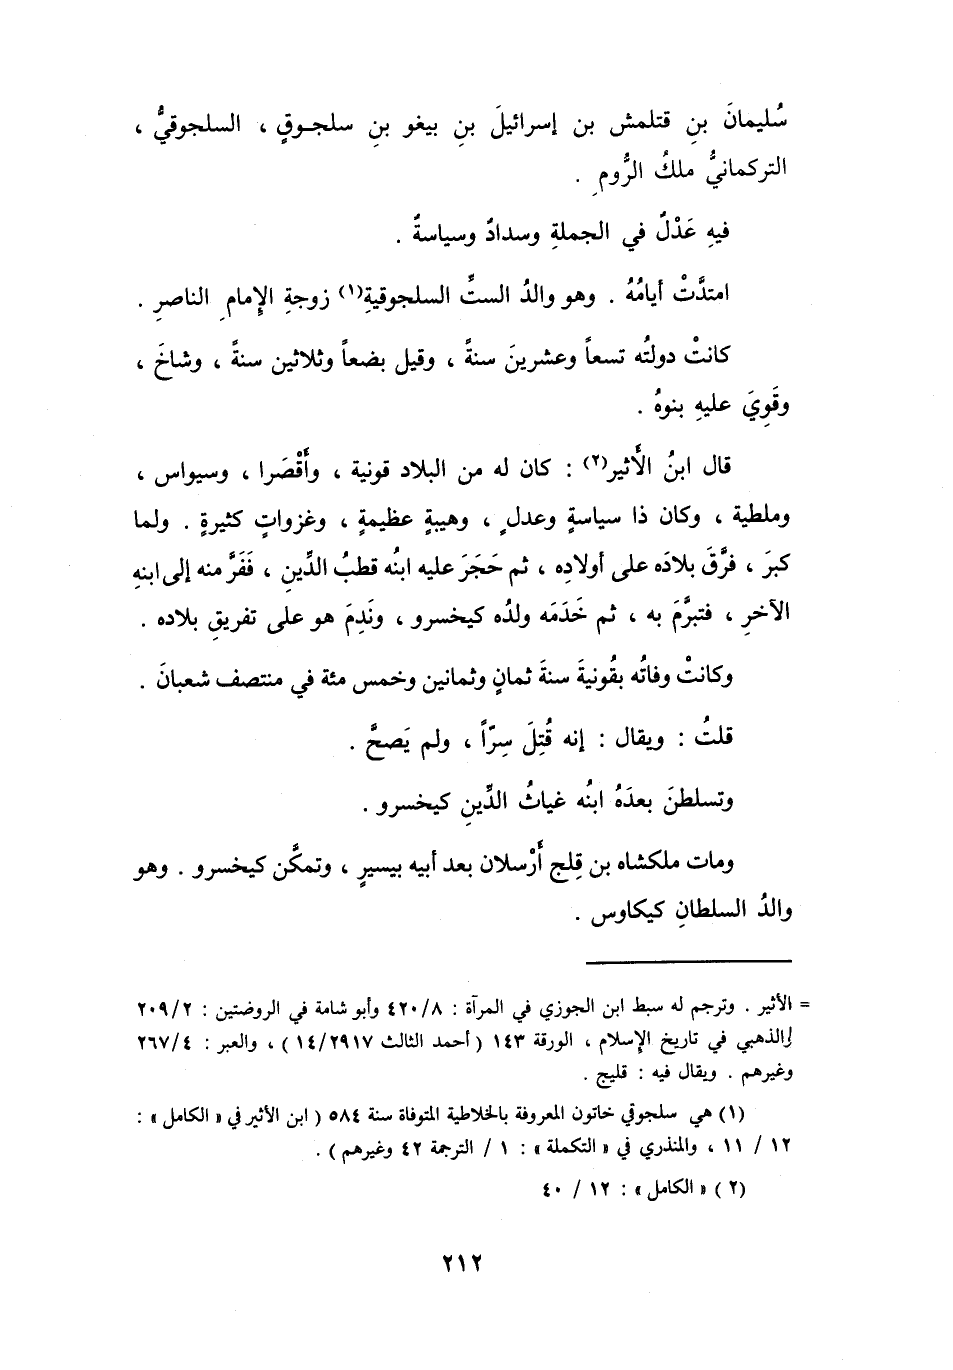 سُليمانَ بنِ قتلمش بن إسرائيلَ بنِ بيغو بنِ سلجـوقٍ ، السلجوقيُّ ،
التركمانيُّ ملكُ الرُّومِ .
فيهِ عَدْلٌ في الجملةِ وسدادٌ وسياسةٌ .
امتدَّتْ أيامُهُ . وهو والدُ الستِّ السلجوقيةِ(١) زوجةِ الإِمامِ الناصرِ .
كانتْ دولتُه تسعاً وعشرينَ سنةً ، وقيل بضعاً وثلاثين سنةً ، وشاخَ ،
وقَوِيَ عليهِ بنوهُ .
قال ابنُ الأَثير(٢) : كان له من البلاد قونية ، وأَقْصَرا ، وسيواس ،
وملطية ، وكان ذا سياسةٍ وعدلٍ ، وهيبةٍ عظيمةٍ ، وغزواتٍ كثيرةٍ . ولما
كبرَ ، فرَّقَ بلادَه على أولادِه ، ثم حَجَرَ عليه ابنُه قطبُ الدِّينِ ، فَفَرَّ منه إلى ابنهِ
الآخرِ ، فتبرَّمَ به ، ثم خَدَمَه ولدُه كيخسرو ، ونَدِمَ هو على تفريقِ بلاده .
وكانتْ وفاتُه بقُونيةَ سنةَ ثمانٍ وثمانين وخمس مئة في منتصف شعبانَ .
قلتُ : ويقال : إنه قُتِلَ سِرّاً ، ولم يَصحَّ .
وتسلطنَ بعدَهُ ابنُه غياثُ الدِّينِ كيخسرو .
ومات ملكشاه بن قِلج أَرْسلان بعد أبيه بيسيرٍ ، وتمكَّن كيخسرو . وهو
والدُ السلطانِ كيكاوس .
= الأثير . وترجم له سبط ابن الجوزي في المرآة : ٤٢٠/٨ وأبو شامة في الروضتين : ٢٠٩/٢
والذهبي في تاريخ الإسلام ، الورقة ١٤٣ ( أحمد الثالث ١٤/٢٩١٧ ) ، والعبر : ٢٦٧/٤
وغيرهم . ويقال فيه : قليج .
(١) هي سلجوقي خاتون المعروفة بالخلاطية المتوفاة سنة ٥٨٤ ( ابن الأثير في « الكامل » :
١٢ / ١١ ، والمنذري في « التكملة » : ١ / الترجمة ٤٢ وغيرهم ) .
(٢) « الكامل » : ١٢ / ٤٠
٢١٢